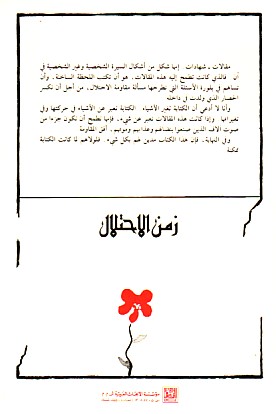 مقالات ـ شهادات. إنها شكل من أشكال السيرة الشخصية وغير الشخصية في
آن. فالذي كانت تطمح إليه هذه المقالات، هو أن تكتب اللحظة الساخنة، وأن
تساهم في بلورة الأسئلة التي تطرحها مسألة مقاومة الاحتلال، من أجل أن نكسر
الحصار الذي ولدت في داخله
وأنا لا أدعي أن الكتابة تغير الأشياء. الكتابة تعبر عن الأشياء في حركتها وفي
تغيراتها. وإذا كانت هذه المقالات تعبر عن شيء، فإنها تطمح أن تكون جزءا من
صوت آلاف الذين صنعوا بنضالهم وعذابهم وموتهم، أفق المقاومة
وفي النهاية، فإن هذا الكتاب مدين لهم بكل شيء. فلولاهم لما كانت الكتابة
ممكنة
زمن الاحتلال
مؤسسة الأبحاث العربية ش.م.م